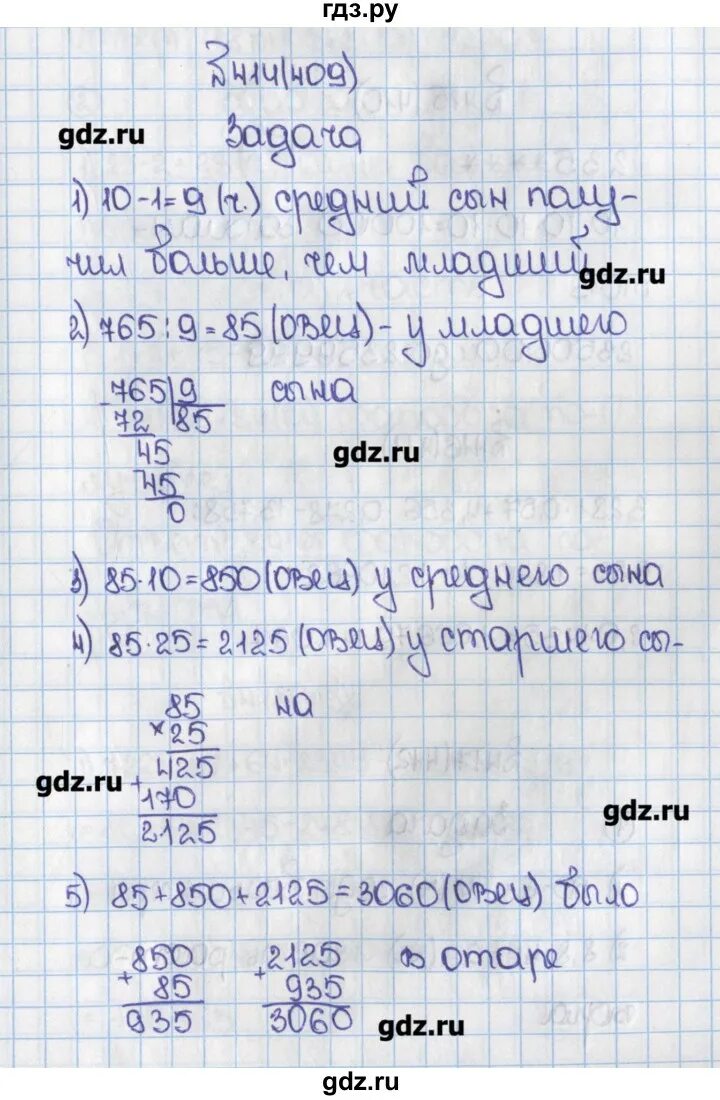 гдз.ру
№414(409)
gdz.ru
Задача
1) 10-1=9 (ч.) средний сын полу-
чил больше, чем младший
gdz.ru
2) 765:9=85 (овец) - у младшего
сына
765|9
72 85
45
45
0
gdz.ru
3) 85·10=850 (овец) у среднего сына
4) 85·25=2125 (овец) у старшего сы-
на
85
×25
425
+
170
2125
gdz.ru
gdz.ru
5) 85+850+2125=3060 (овец) было
в отаре
850
+ 85
935
2125
+ 935
3060
gdz.ru
gdz.ru